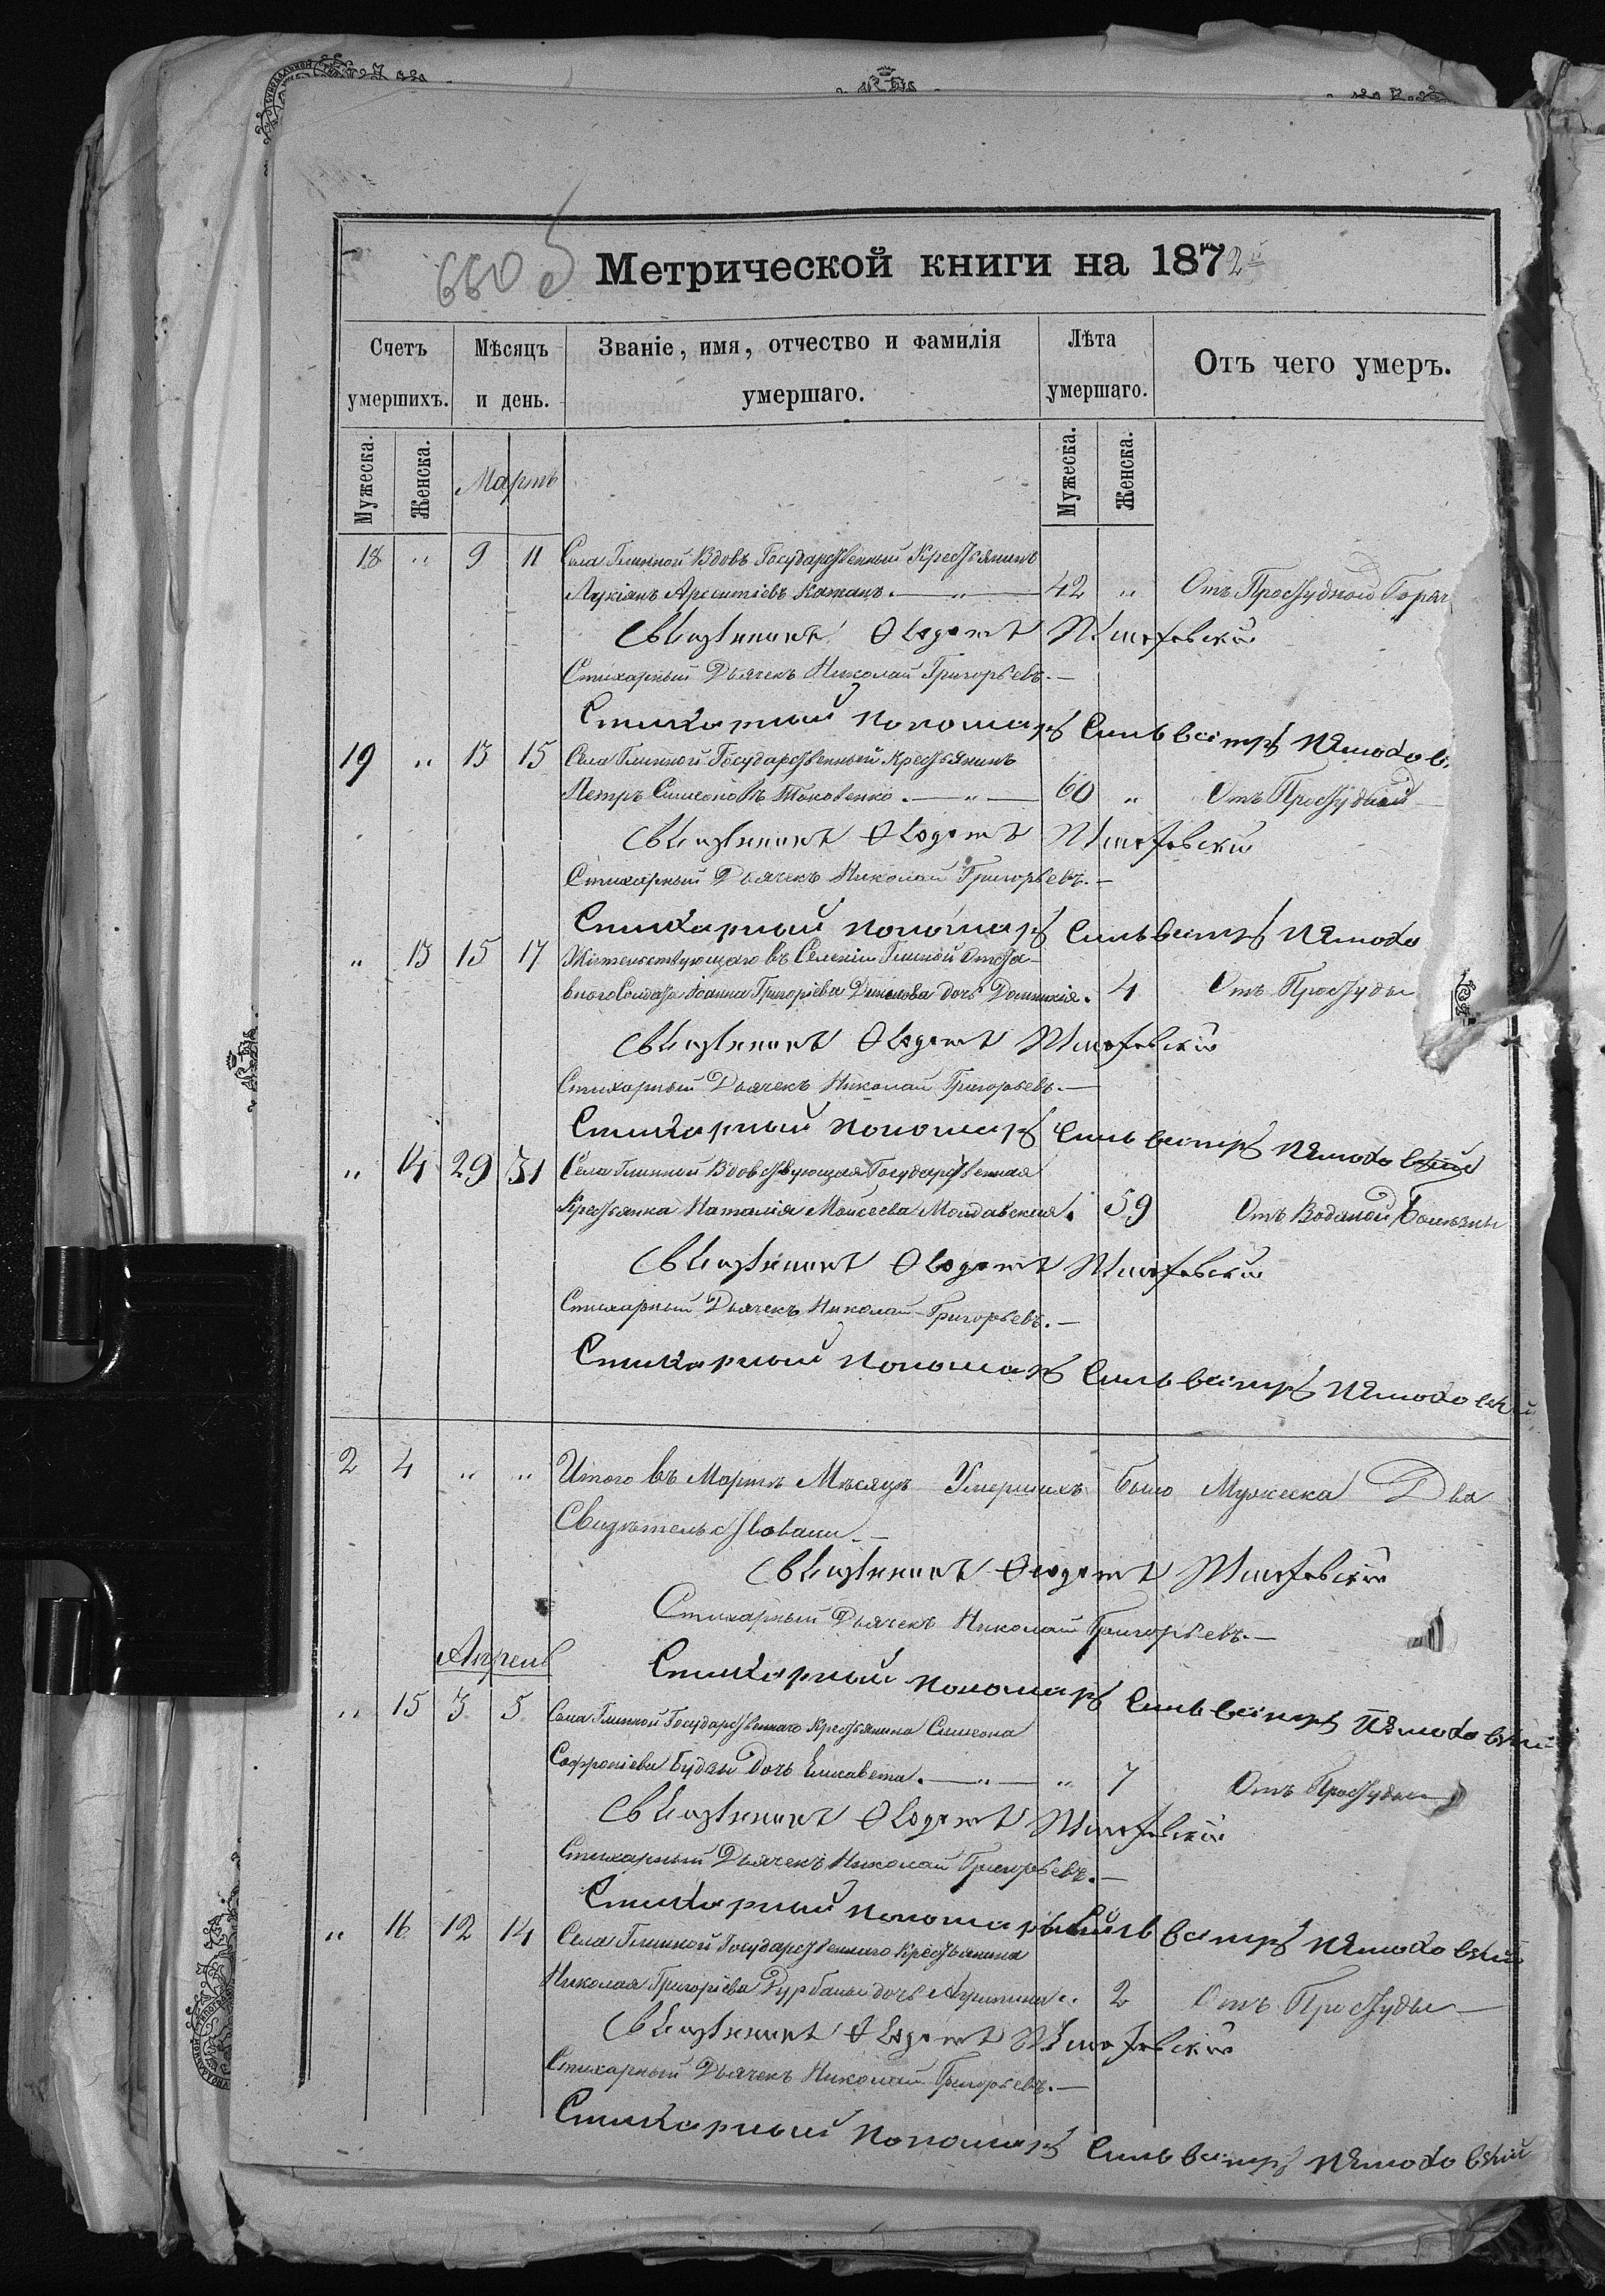 660 об
Метрической книги на 1872й
Счетъ умершихъ.
Мѣсяцъ и день.
Званіе, имя, отчество и фамилія умершаго.
Лѣта умершаго.
Отъ чего умеръ.
Мужеска.
Женска.
Мартъ
Мужеска.
Женска.
18 " 9 11 Села Глинной Вдовъ Государственный Крестьянинъ
Лукіанъ Арсентіевъ Катанъ. — " — 42 " Отъ Простудной Горяч
Священникъ Ѳеодотъ
Стихарный Дьячекъ Николай Григорьевъ. —
Стихарный пономарь Сильвестръ
19 " 13 15 Села Глинной Государственный Крестьянинъ
Петръ Симеоновъ Токовенко. — " — 60 " Отъ Простуды
Священникъ Ѳеодотъ
Стихарный Дьячекъ Николай Григорьевъ. —
Стихарный пономарь Сильвестръ
" 13 15 17 Жительствующаго въ Селеніи Глиной Отста-
вного Солдата Іоанна Григоріева дочь Домникія. 4 Отъ Простуды
Священникъ Ѳеодотъ
Стихарный Дьячекъ Николай Григорьевъ. —
Стихарный пономарь Сильвестръ
" 14 29 31 Села Глинной Вдовствующая Государственная
Крестьянка Наталія Моисеева Молдавская. 59 Отъ Водяной Болѣзни
Священникъ Ѳеодотъ
Стихарный Дьячекъ Николай Григорьевъ. —
Стихарный пономарь Сильвестръ
2 4 " " Итого въ Мартѣ Мѣсяцѣ Умершихъ было Мужеска Два
Свидѣтельствовали —
Священникъ Ѳеодотъ
Стихарный Дьячекъ Николай Григорьевъ. —
Апрель
Стихарный пономарь Сильвестръ
" 15 3 5 Села Глинной Государственнаго Крестьянина Симеона
Софроніева Будзы Дочь Елисавета. — " — " 7 Отъ Простуды
Священникъ Ѳеодотъ
Стихарный Дьячекъ Николай Григорьевъ. —
Стихарный пономарь Сильвестръ
" 16 12 14 Села Глинной Государственнаго Крестьянина
Николая Григоріева Дурбалы дочь Агрипина. 2 Отъ Простуды —
Священникъ Ѳеодотъ
Стихарный Дьячекъ Николай Григорьевъ. —
Стихарный пономарь Сильвестръ